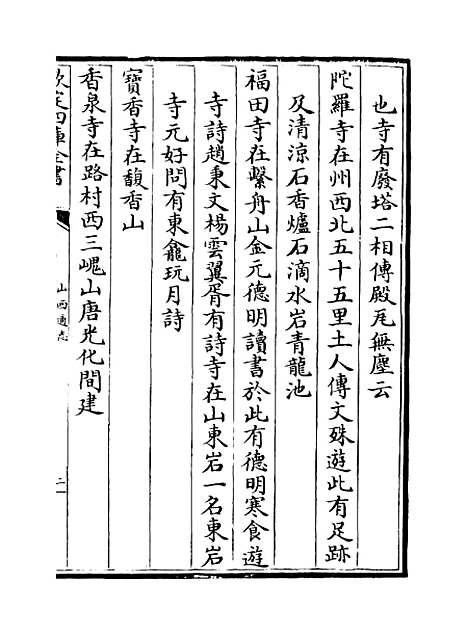 也寺有廢塔二相傳殿瓦無塵云
陀羅寺在州西北五十五里土人傳文殊遊此有足跡
及清涼石香爐石滴水岩青龍池
福田寺在繫舟山金元德明讀書於此有德明寒食遊
寺詩趙秉文楊雲翼胥有詩寺在山東岩一名東岩
寺元好問有東龕玩月詩
寶香寺在馥香山
香泉寺在路村西三嵬山唐光化間建
欽定四庫全書
山西通志